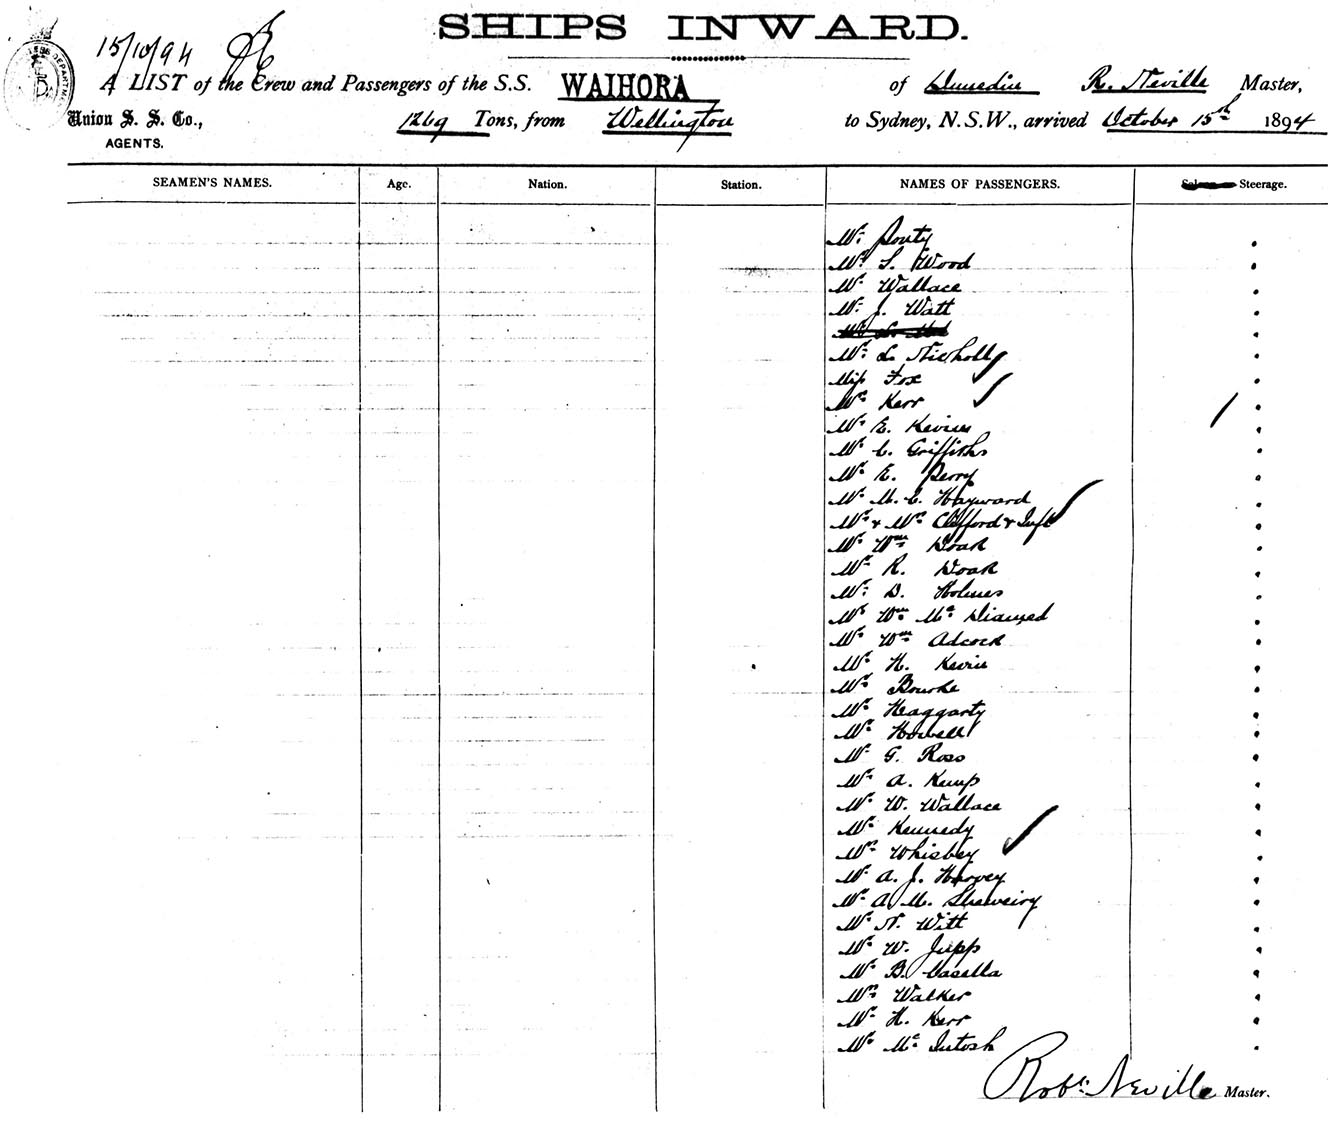 SHIPS INWARD.
15/10/94
A LIST of the Crew and Passengers of the S.S. WAIHORA of Dunedin R. Neville Master,
Union S. S. Co., 1269 Tons, from Wellington to Sydney, N.S.W., arrived October 15th 1894
AGENTS.
SEAMEN'S NAMES. Age. Nation. Station. NAMES OF PASSENGERS. Steerage.
Mr. Prouty
Mr. S. Wood
Mr. Wallace
Mr. J. Watt
Mr. L. Nicholls
Miss Fox
Kerr
Mr. E. Kevin
Mr. C. Griffiths
Mr. E. Perry
Mr. M. C. Hayward
Mr. & Mrs. Clifford & Inft
Mr. Wm. Doak
Mr. R. Doak
Mr. D. Holmes
Mr. Wm. Mc.
Mr. Wm. Adcock
Mr. H. Kevin
Mr. Bourke
Mr. Haggarty
Mr. Howell
Mr. G. Ross
Mr. A. Kemp
Mr. W. Wallace
Mr. Kennedy
Whisbey
Mr. A. J. Harvey
Mr. A. M.
Mr. N. Witt
Mr. W. Jupp
Mr. B. Casella
Mrs. Walker
Mr. H. Kerr
Mr. Mc. Intosh
Robt. Neville Master.